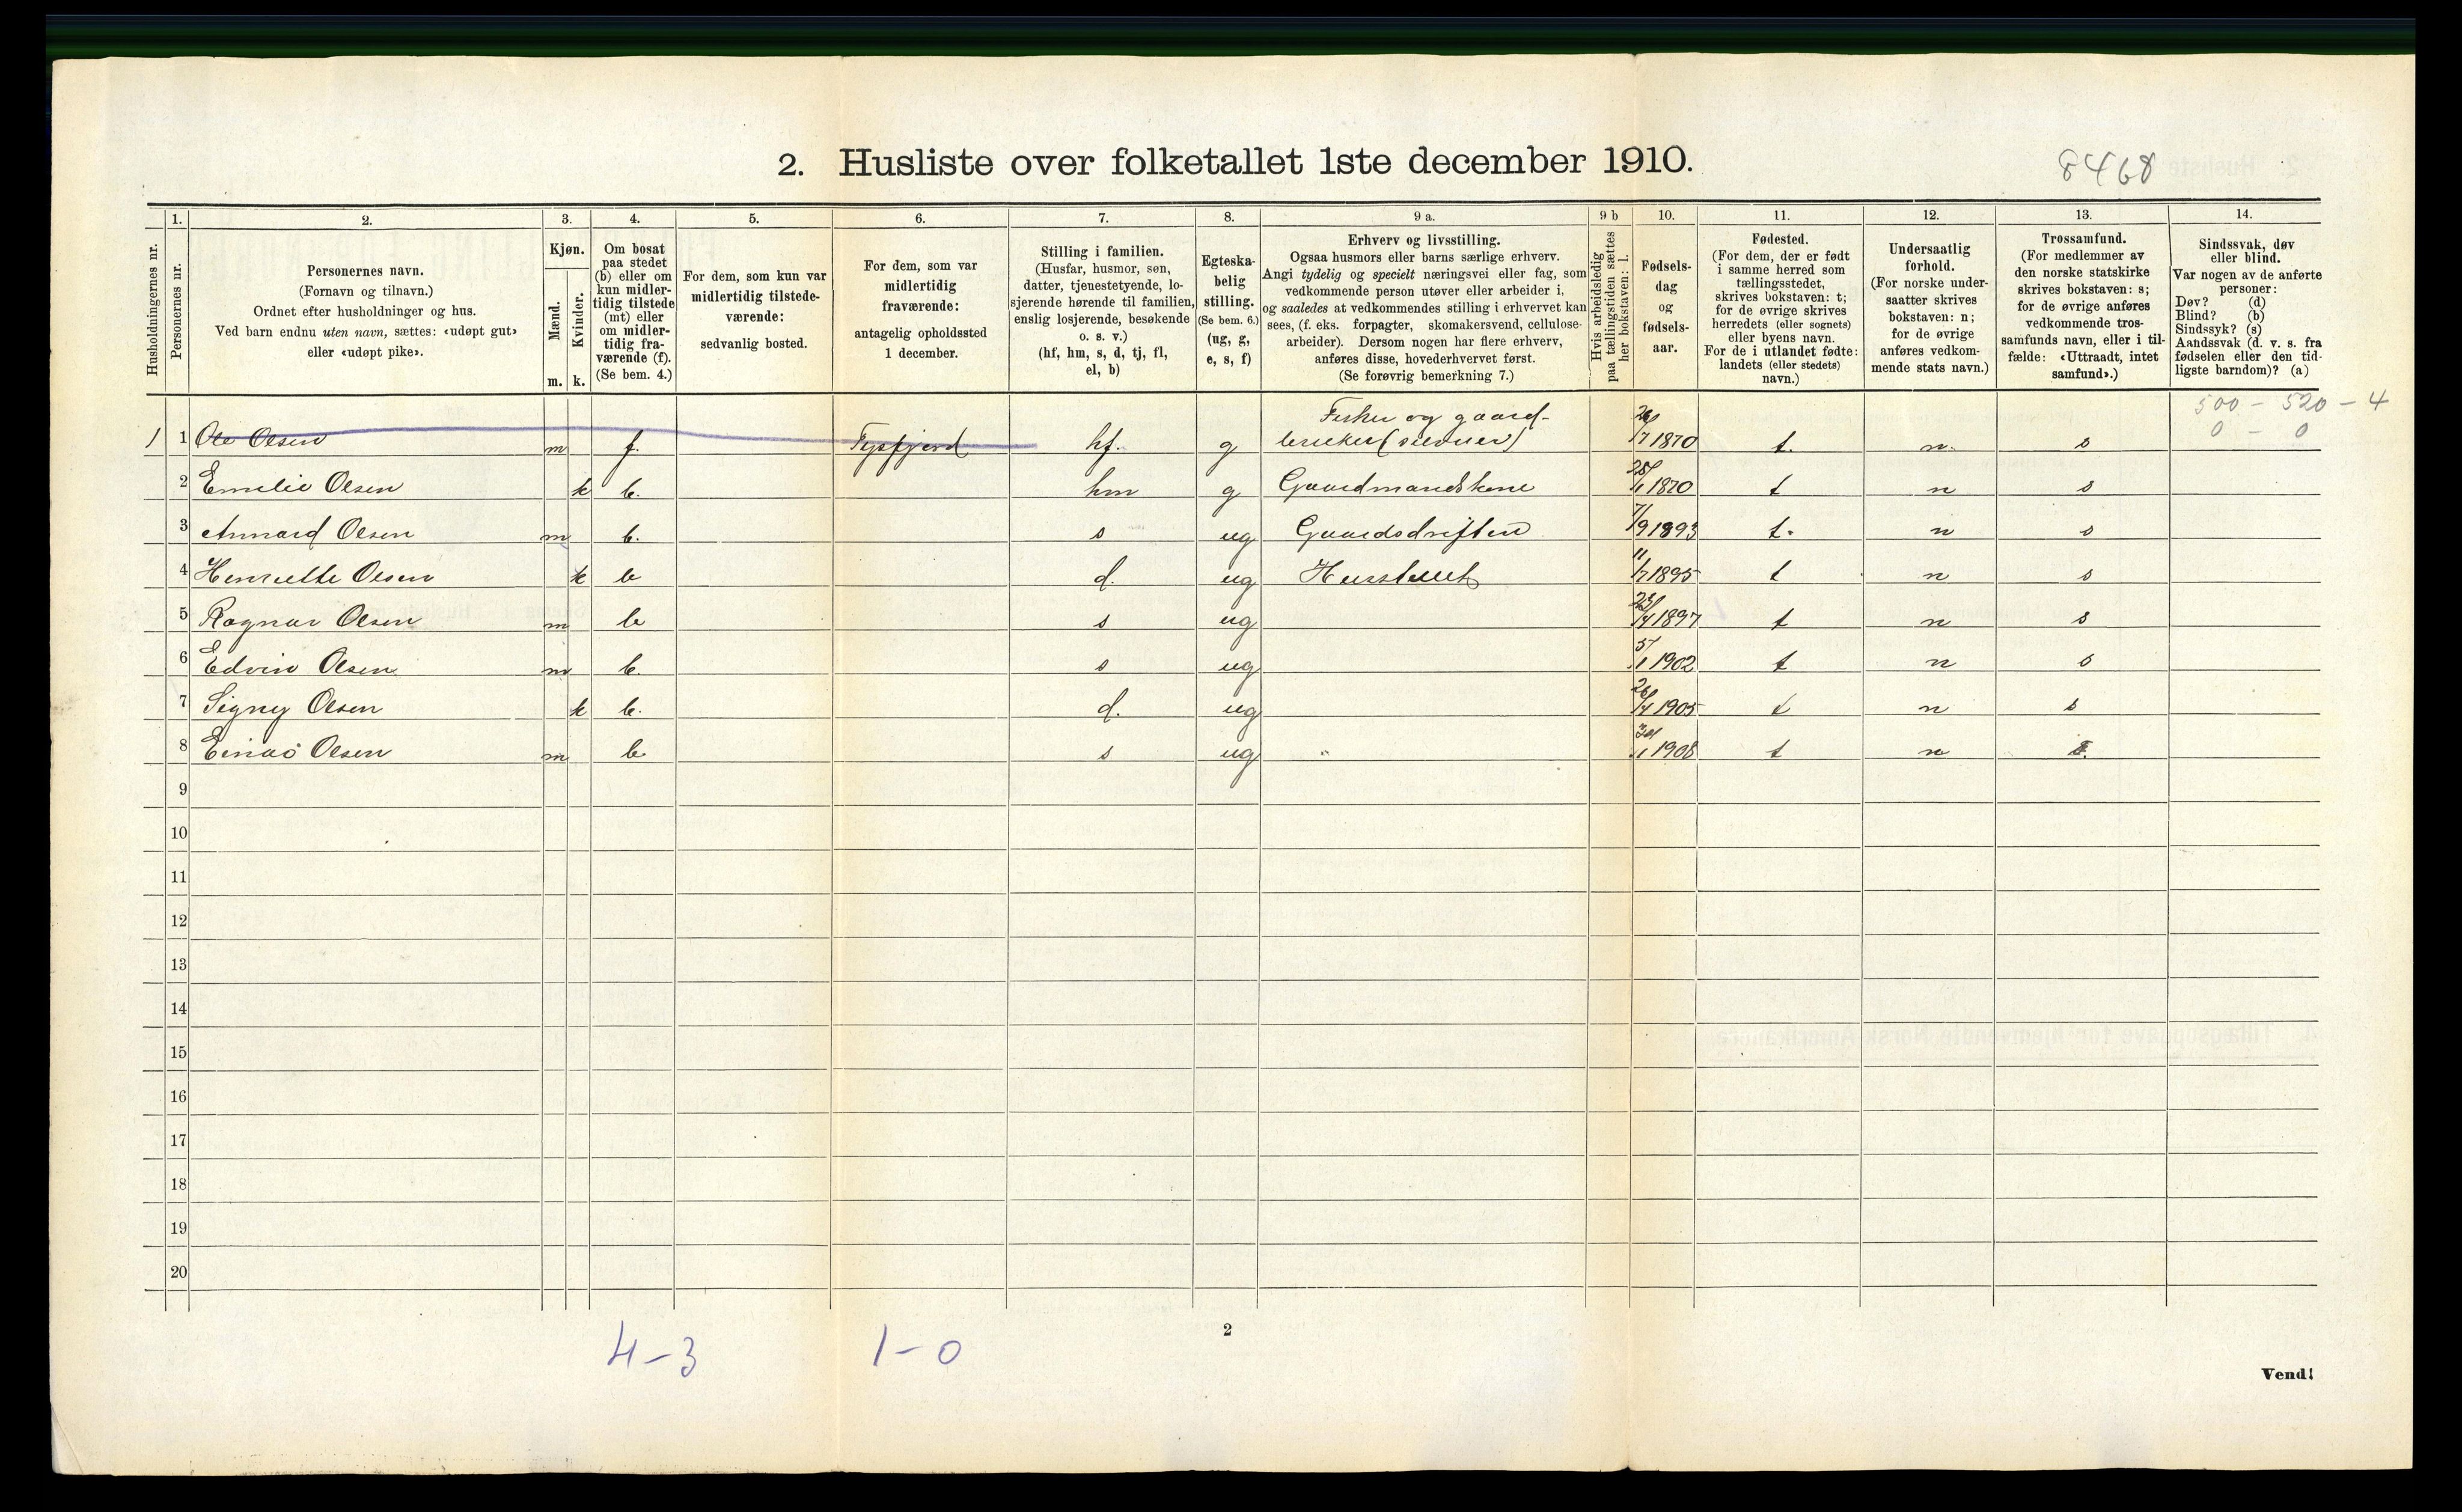 2. Husliste over folketallet 1ste december 1910.
8468
1. 2. 3. 4. 5. 6. 7. 8. 9 a. 9 b 10. 11. 12. 13. 14.
Husholdningernes nr.
Personernes nr.
Personernes navn.
(Fornavn og tilnavn.)
Ordnet efter husholdninger og hus.
Ved barn endnu uten navn, sættes: «udøpt gut»
eller «udøpt pike».
Kjøn.
Mænd.
Kvinder.
m. k.
Om bosat
paa stedet
(b) eller om
kun midler-
tidig tilstede
(mt) eller
om midler-
tidig fra-
værende (f).
(Se bem. 4.)
For dem, som kun var
midlertidig tilstede-
værende:
sedvanlig bosted.
For dem, som var
midlertidig
fraværende:
antagelig opholdssted
1 december.
Stilling i familien.
(Husfar, husmor, søn,
datter, tjenestetyende, lo-
sjerende hørende til familien,
enslig losjerende, besøkende
o. s. v.)
(hf, hm, s, d, tj, fl,
el, b)
Egteska-
belig
stilling.
(Se bem. 6.)
(ug, g,
e, s, f)
Erhverv og livsstilling.
Ogsaa husmors eller barns særlige erhverv.
Angi tydelig og specielt næringsvei eller fag, som
vedkommende person utøver eller arbeider i,
og saaledes at vedkommendes stilling i erhvervet kan
sees, (f. eks. forpagter, skomakersvend, cellulose-
arbeider). Dersom nogen har flere erhverv,
anføres disse, hovederhvervet først.
(Se forøvrig bemerkning 7.)
Hvis arbeidsledig
paa tællingstiden sættes
her bokstaven: l.
Fødsels-
dag
og
fødsels-
aar.
Fødested.
(For dem, der er født
i samme herred som
tællingsstedet,
skrives bokstaven: t;
for de øvrige skrives
herredets (eller sognets)
eller byens navn.
For de i utlandet fødte:
landets (eller stedets)
navn.)
Undersaatlig
forhold.
(For norske under-
saatter skrives
bokstaven: n;
for de øvrige
anføres vedkom-
mende stats navn.)
Trossamfund.
(For medlemmer av
den norske statskirke
skrives bokstaven: s;
for de øvrige anføres
vedkommende tros-
samfunds navn, eller i til-
fælde: «Uttraadt, intet
samfund».)
Sindssvak, døv
eller blind.
Var nogen av de anførte
personer:
Døv? (d)
Blind? (b)
Sindssyk? (s)
Aandssvak (d. v. s. fra
fødselen eller den tid-
ligste barndom)? (a)
500 - 520 - 4
0 - 0
Fisker og gaard-
1 1 Ole Olsen m f. Tysfjord hf. g bruker (selveier) 26/7 1870 t. n. s
2 Emelie Olsen k b. hm g Gaardmandskone 1870 t n s
3 Annard Olsen m b. s ug Gaardsdriften 7/9 1893 t. n s
4 Henriette Olsen k b d. ug Husstellet 11/7 1895 t n s
5 Ragnar Olsen m b s ug 23/4 1897 t n s
6 Edvin Olsen m b. s ug 5/1 1902 t n s
7 Signy Olsen k b. d. ug 26/4 1905 t n s
8 Einar Olsen m b s ug " 1908 t n s.
9
10
11
12
13
14
15
16
17
18
19
20
4-3 1-0
2
Vend!